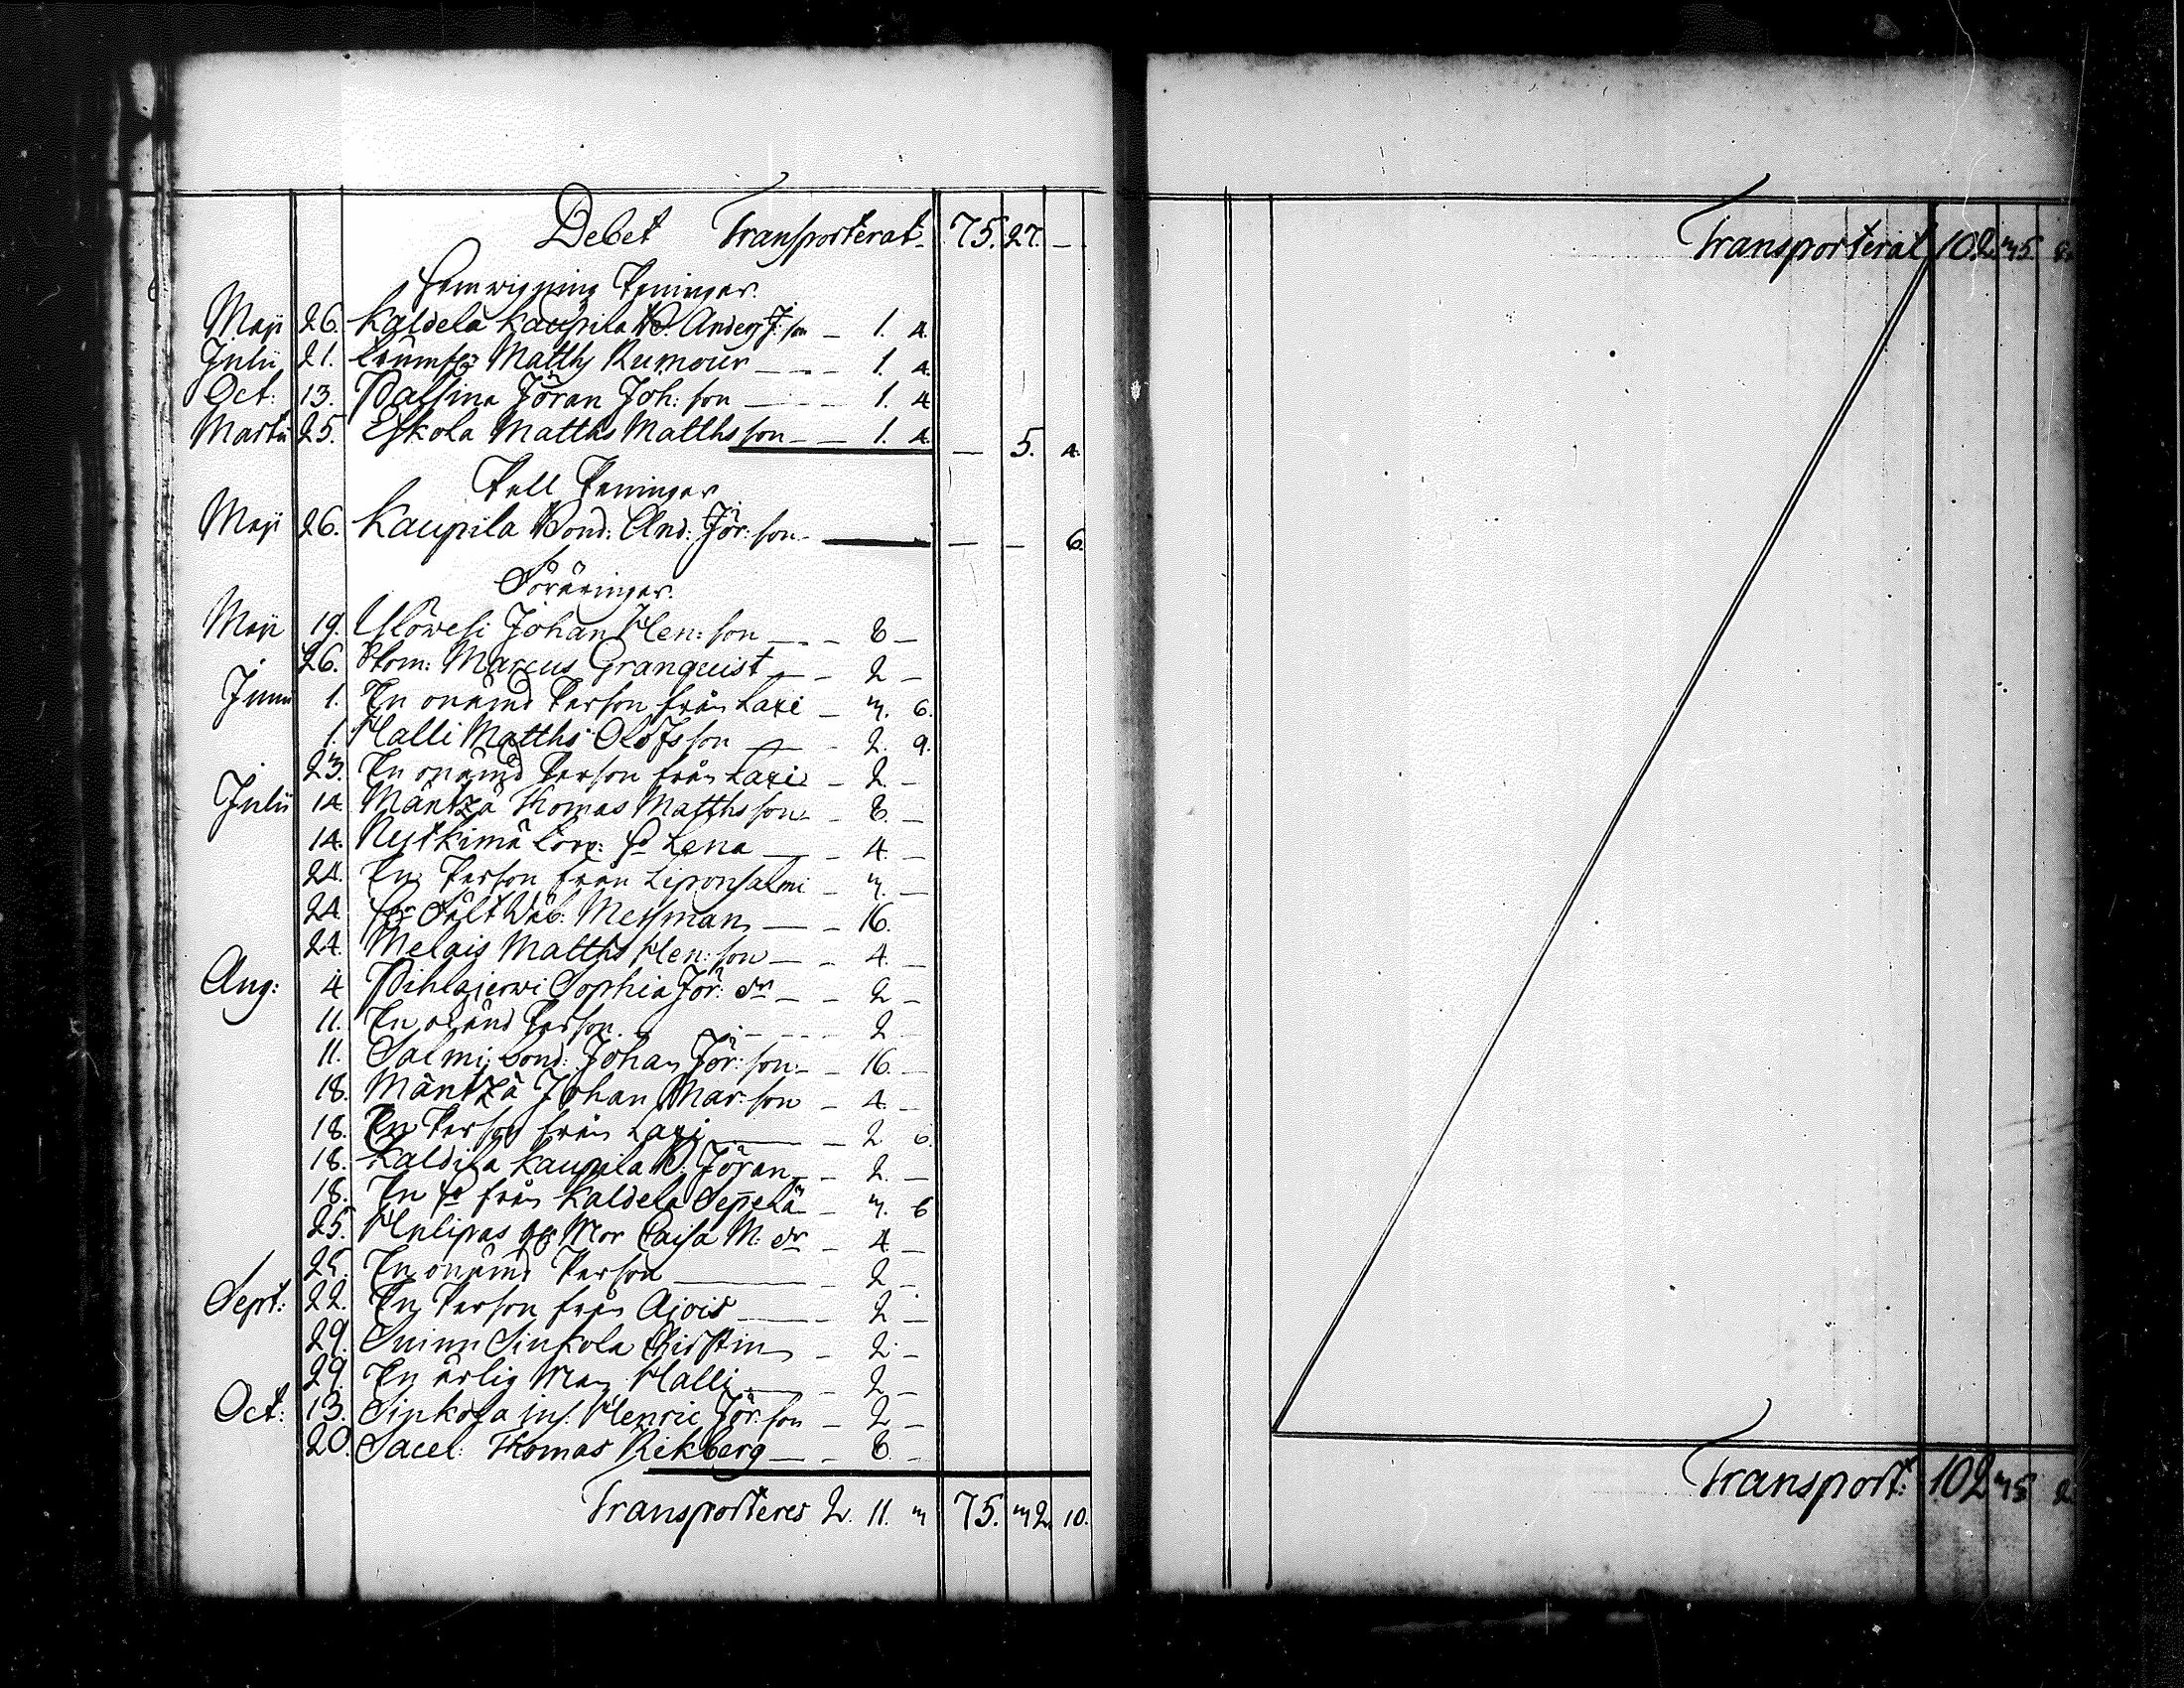 Debet Transporterat 75. 27. —
Hemwigning Peningar.
Maji 26. Kaldela Kaupila B. Anders J:son — 1. 4.
Julii 21. Matths Rumour — 1. 4.
Oct: 13. Palsina Jöran Joh: son — 1. 4
Martii 25. Eskola Matths Matthsson — 1. 4. — 5. 4.
Pell Peningar
Maji 26. Kaupila Bond: And: Jör: son — — — 6.
Föräringar.
Maji 19. Ylöwesi Johan Hen: son — 8 —
26. Marcus Granquist — 2 —
Junii 1. En onämd Person från Laxi — 3. 6.
1. Halli Matths Olofsson — 2. 9.
23. En onämd Person från Laxi — 2. —
Julii 14 Mäntzä Thomas Matthsson — 8. —
14. Nytkimä Corp: H Lena — 4. —
24. En Person från Liponsalmi — 3. —
24. Hr Fält Wäb: Messman — 16.
24. Melais Matths Hen: son — 4. —
Aug: 4 Pihlajerwi Sophia Jör: dr — 2 —
11. En onämd Person — 2 —
11. Salmi bond: Johan Jör: son — 16. —
18. Mäntzä Johan Mar: son — 4. —
18. En Person från Laxi — 2 6.
18. Kaldila Kaupila B. Jöran — 2. —
18. En H från Kaldela Seppelä — 3. 6
25. Hulipas Mor Caisa M: dr — 4 —
25. En onämd Person — 2 —
Sept: 22. En Person från Ajois — 2 —
29. Suinu Sinkola Christin — 2 —
29. En ärlig Man Halli — 2 —
Oct: 13. Sinkola inh: Henric Jör: son — 2 —
20. Sacel: Thomas Rikberg — 8. —
Transporteres 2. 11. 3 75. 32. 10.
Transporterat 102. 35
Transport: 102 35